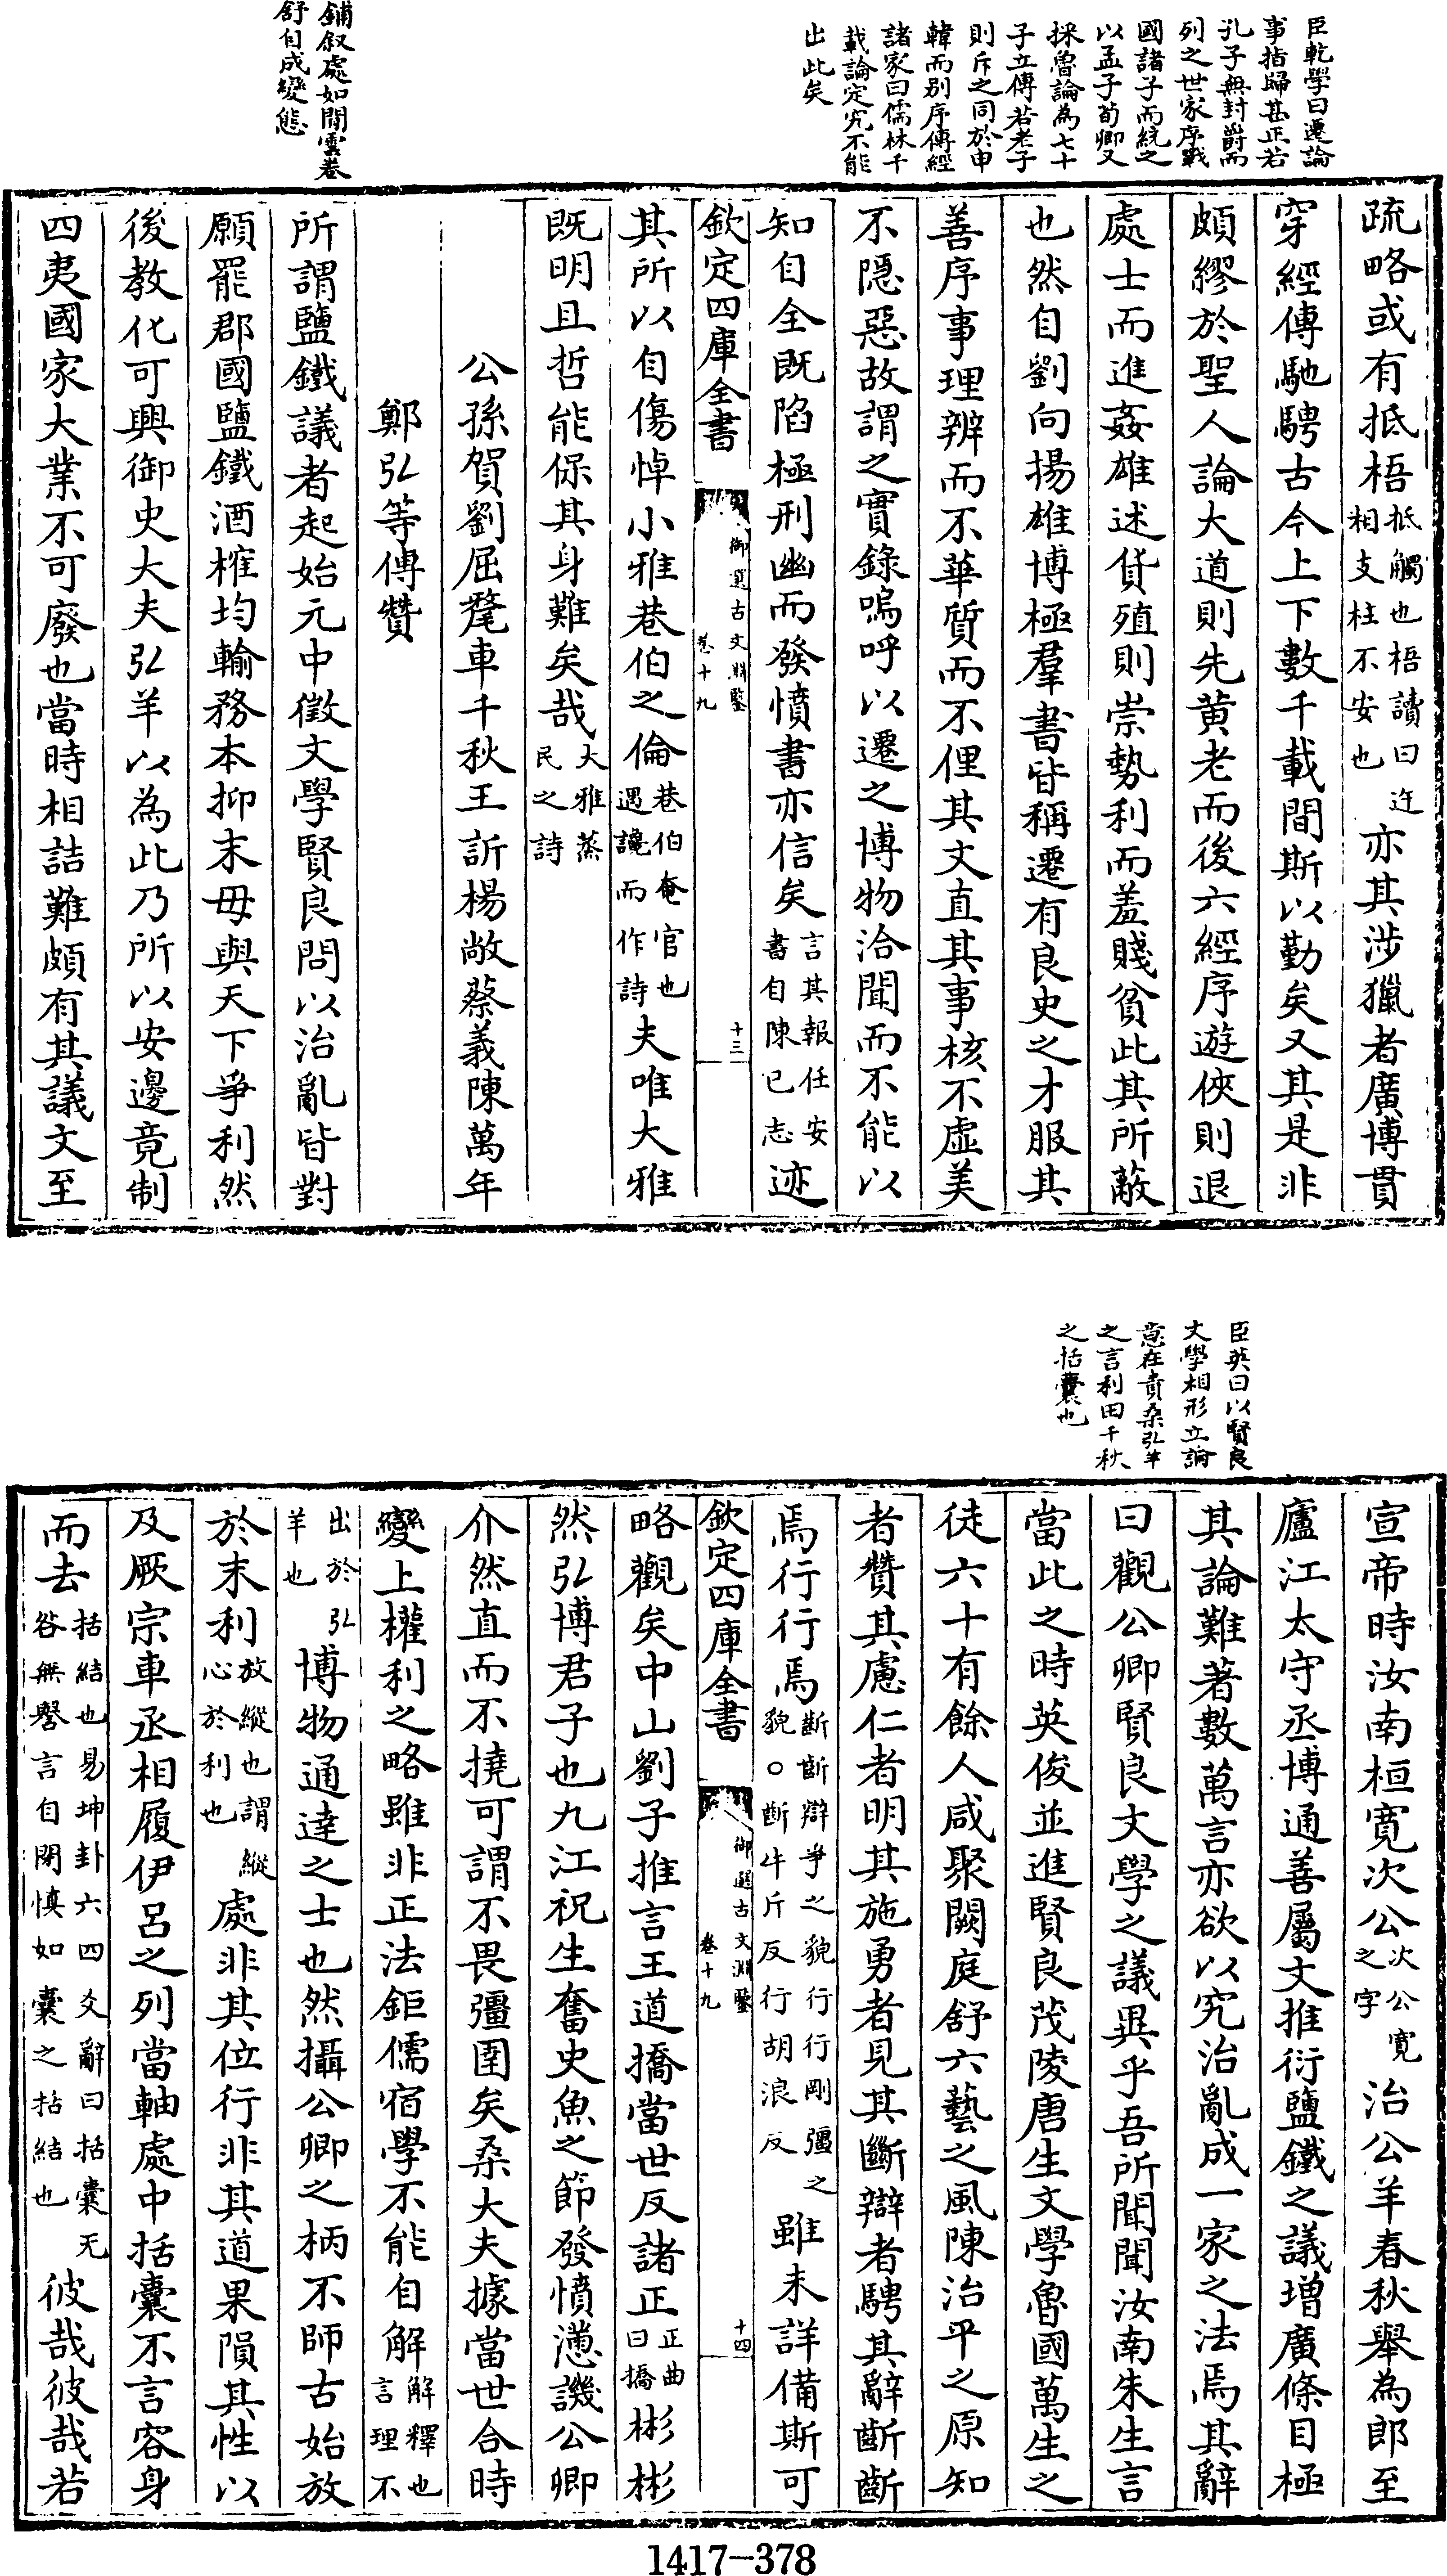 臣乾學曰遷論
事指歸甚正若
孔子無封爵而
列之世家序戰
國諸子而統之
以孟子荀卿又
採魯論為七十
子立傳若老子
則斥之同於申
韓而別序傳經
諸家曰儒林千
載論定究不能
出此矣
鋪叙處如閒雲卷
舒自成變態
疏略或有抵梧抵觸也梧讀曰迕相支柱不安也亦其涉獵者廣博貫
穿經傳馳騁古今上下數千載間斯以勤矣又其是非
頗繆於聖人論大道則先黄老而後六經序遊俠則退
處士而進姦雄述貨殖則崇勢利而羞賤貧此其所蔽
也然自劉向揚雄博極羣書皆稱遷有良史之才服其
善序事理辨而不華質而不俚其文直其事核不虛美
不隱惡故謂之實錄嗚呼以遷之博物洽聞而不能以
知自全既陷極刑幽而發憤書亦信矣言其報任安書自陳已志迹
欽定四庫全書 御選古文淵鑒 卷十九 十三
其所以自傷悼小雅巷伯之倫巷伯奄官也遇讒而作詩夫唯大雅
既明且哲能保其身難矣哉大雅蒸民之詩
公孫賀劉屈氂車千秋王訢楊敞蔡義陳萬年
鄭弘等傳贊
所謂鹽鐵議者起始元中徵文學賢良問以治亂皆對
願罷郡國鹽鐵酒榷均輸務本抑末毋與天下爭利然
後教化可興御史大夫弘羊以為此乃所以安邊竟制
四夷國家大業不可廢也當時相詰難頗有其議文至
臣英曰以賢良
文學相形立論
意在責桑弘羊
之言利田千秋
之括囊也
宣帝時汝南桓寛次公次公寛之字治公羊春秋舉為郎至
廬江太守丞博通善屬文推衍鹽鐵之議增廣條目極
其論難著數萬言亦欲以究治亂成一家之法焉其辭
曰觀公卿賢良文學之議異乎吾所聞聞汝南朱生言
當此之時英俊並進賢良茂陵唐生文學魯國萬生之
徒六十有餘人咸聚闕庭舒六藝之風陳治平之原知
者贊其慮仁者明其施勇者見其斷辯者騁其辭齗齗
焉行行焉齗齗辯爭之貌行行剛彊之貌○齗牛斤反行胡浪反雖未詳備斯可
欽定四庫全書 御選古文淵鑒 卷十九 十四
略觀矣中山劉子推言王道撟當世反諸正正曲曰撟彬彬
然弘博君子也九江祝生奮史魚之節發憤懣譏公卿
介然直而不撓可謂不畏彊圉矣桑大夫據當世合時
變上權利之略雖非正法鉅儒宿學不能自解解釋也言理不
出於弘羊也博物通達之士也然攝公卿之柄不師古始放
於末利放縱也謂縱心於利也處非其位行非其道果隕其性以
及厥宗車丞相履伊呂之列當軸處中括囊不言容身
而去括結也易坤卦六四爻辭曰括囊无咎無譽言自閉慎如囊之括結也彼哉彼哉若
1417-378